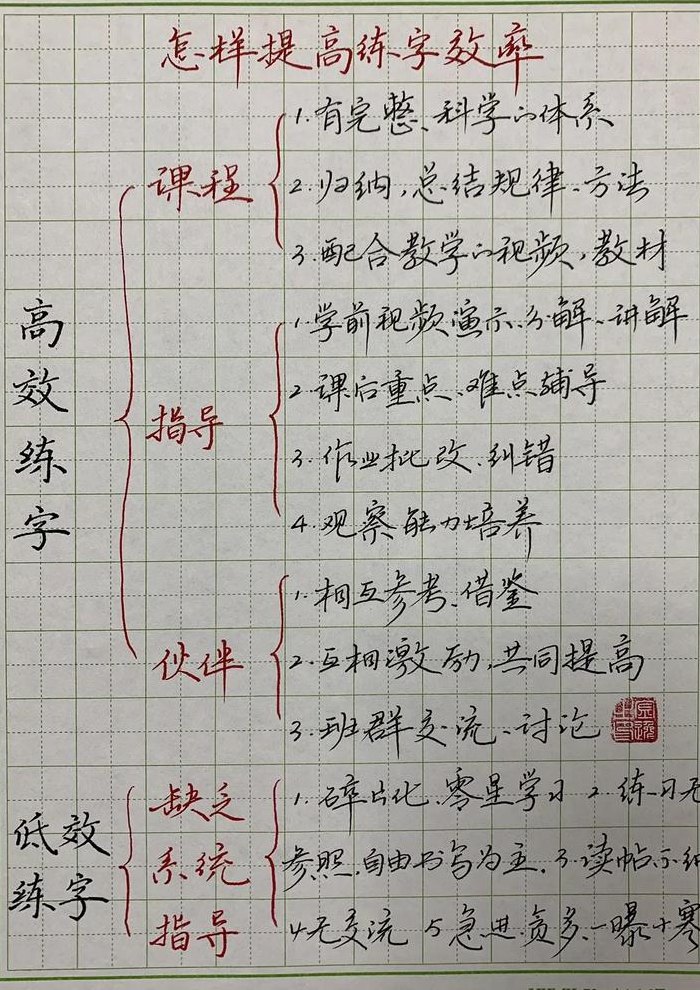 怎样提高练字效率
高效练字
课程
1.有完整、科学的体系
2.归纳,总结规律、方法
3.配合教学的视频,教材
指导
1.学前视频演示、分解、讲解
2.课后重点、难点辅导
3.作业批改、纠错
4.观察能力培养
伙伴
1.相互参考、借鉴
2.互相激励,共同提高
3.班群交流、讨论
低效练字
缺乏系统指导
1.碎片化、零星学习 2.练习无
参照,自由书写为主.3.读帖不细
4.无交流 5.急进、贪多、一曝十寒